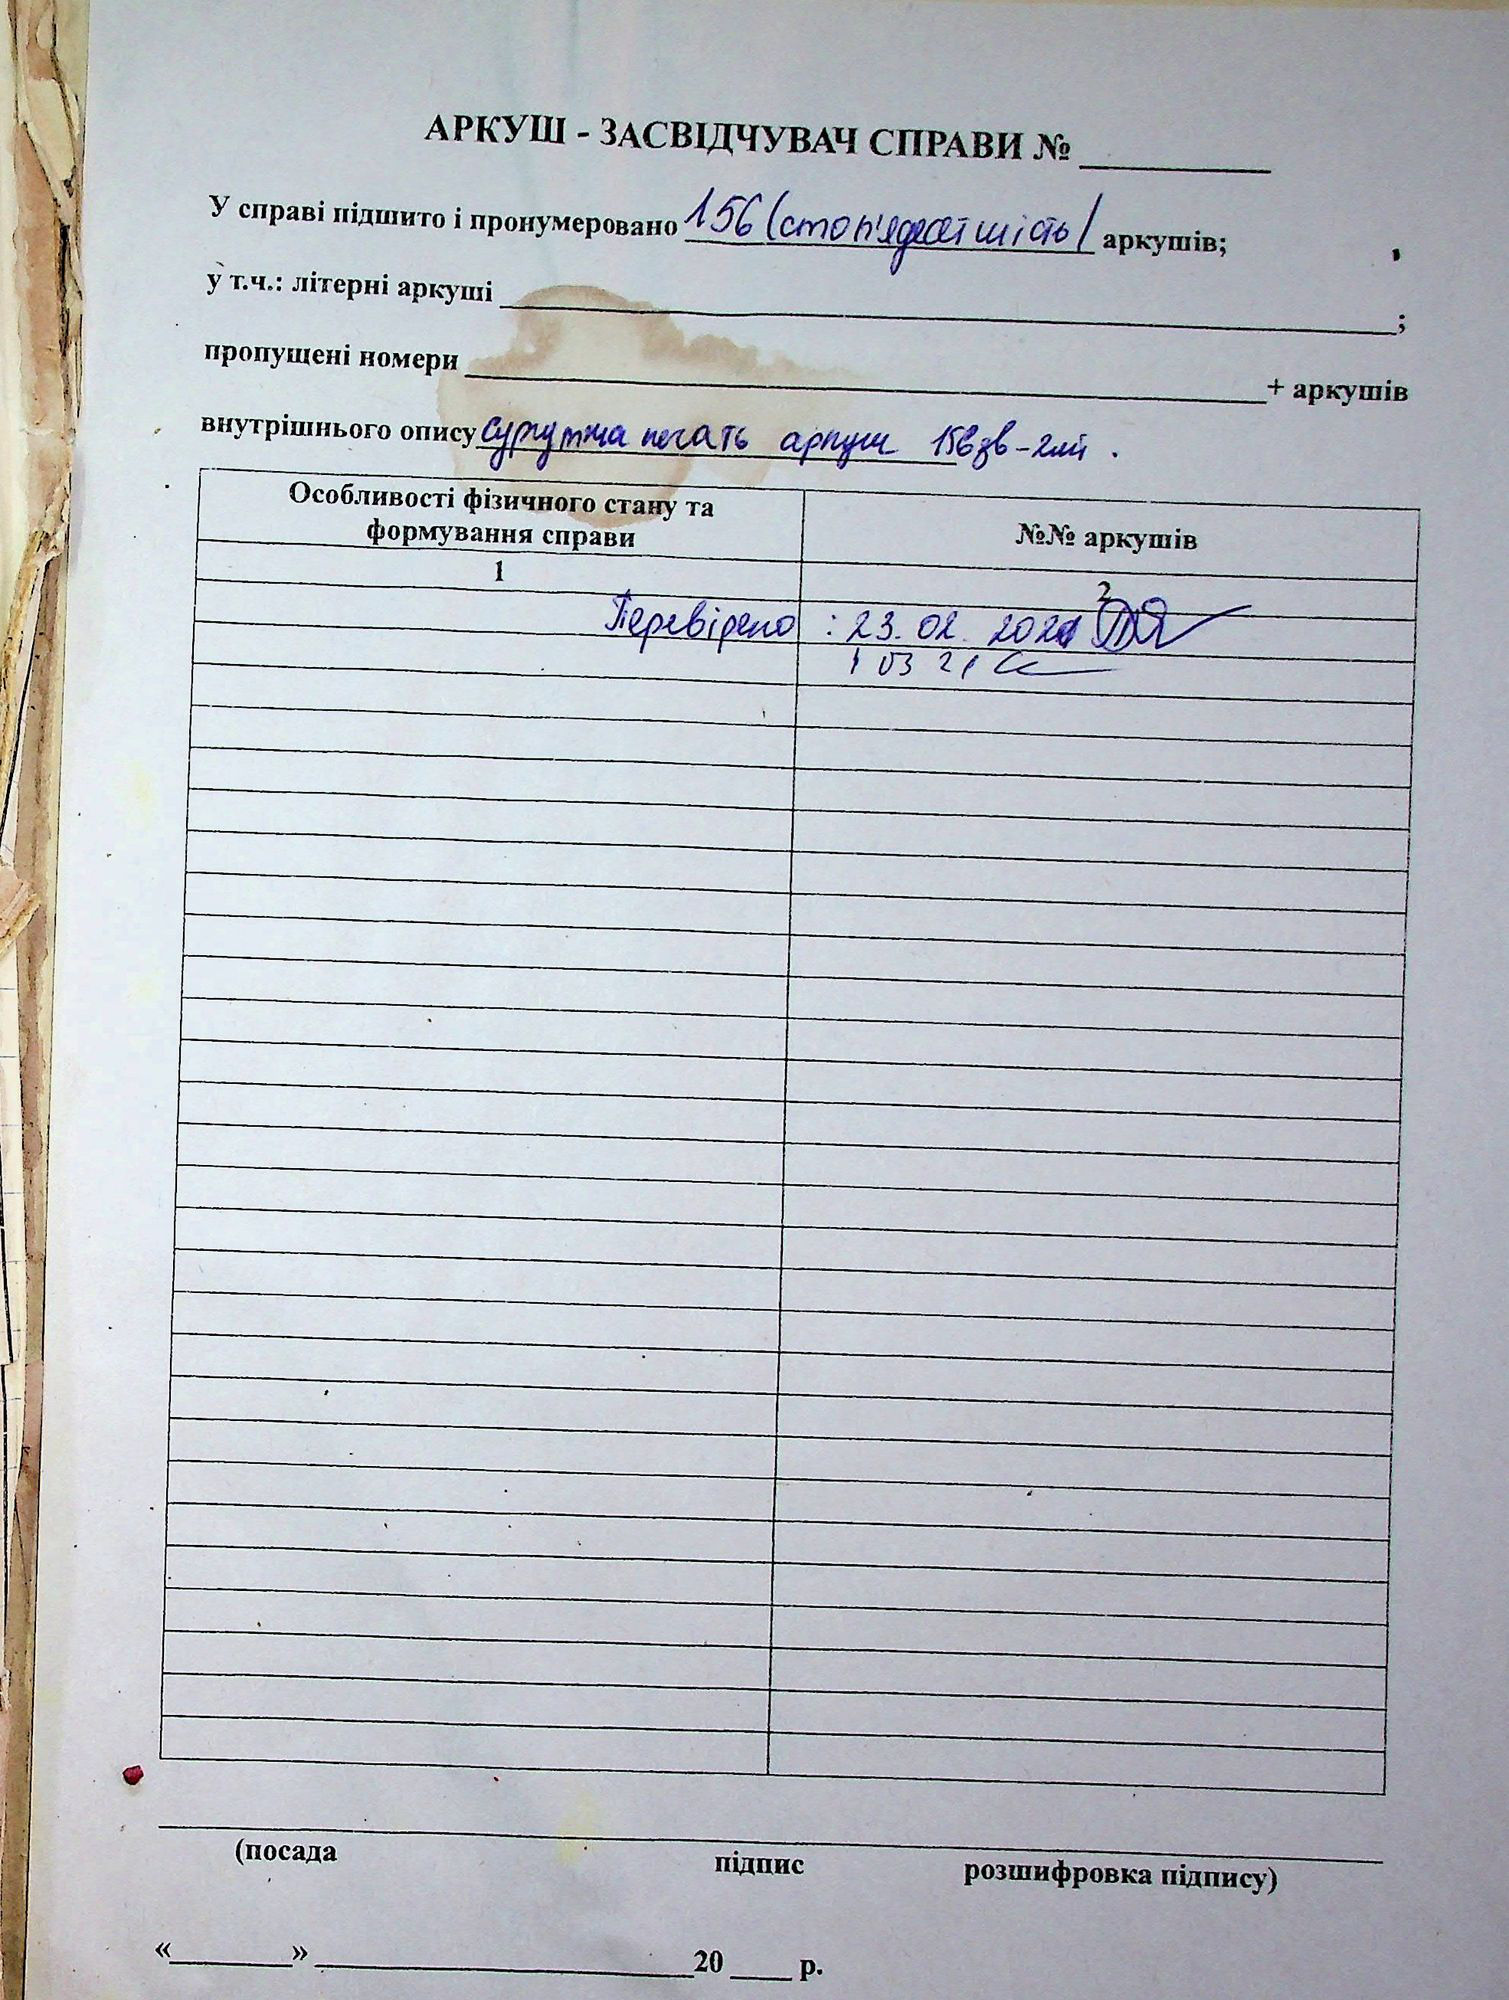 АРКУШ - ЗАСВІДЧУВАЧ СПРАВИ № ________
У справі підшито і пронумеровано 156 (сто п'ядесят шість) аркушів;
у т.ч.: літерні аркуші ________;
пропущені номери ________+ аркушів
внутрішнього опису сургучна печать аркуш 156зв-2шт.
Особливості фізичного стану та формування справи
№№ аркушів
1
2
Перевірено : 23.02.2021
1 03 21
(посада підпис розшифровка підпису)
«________» ________20 ____ р.